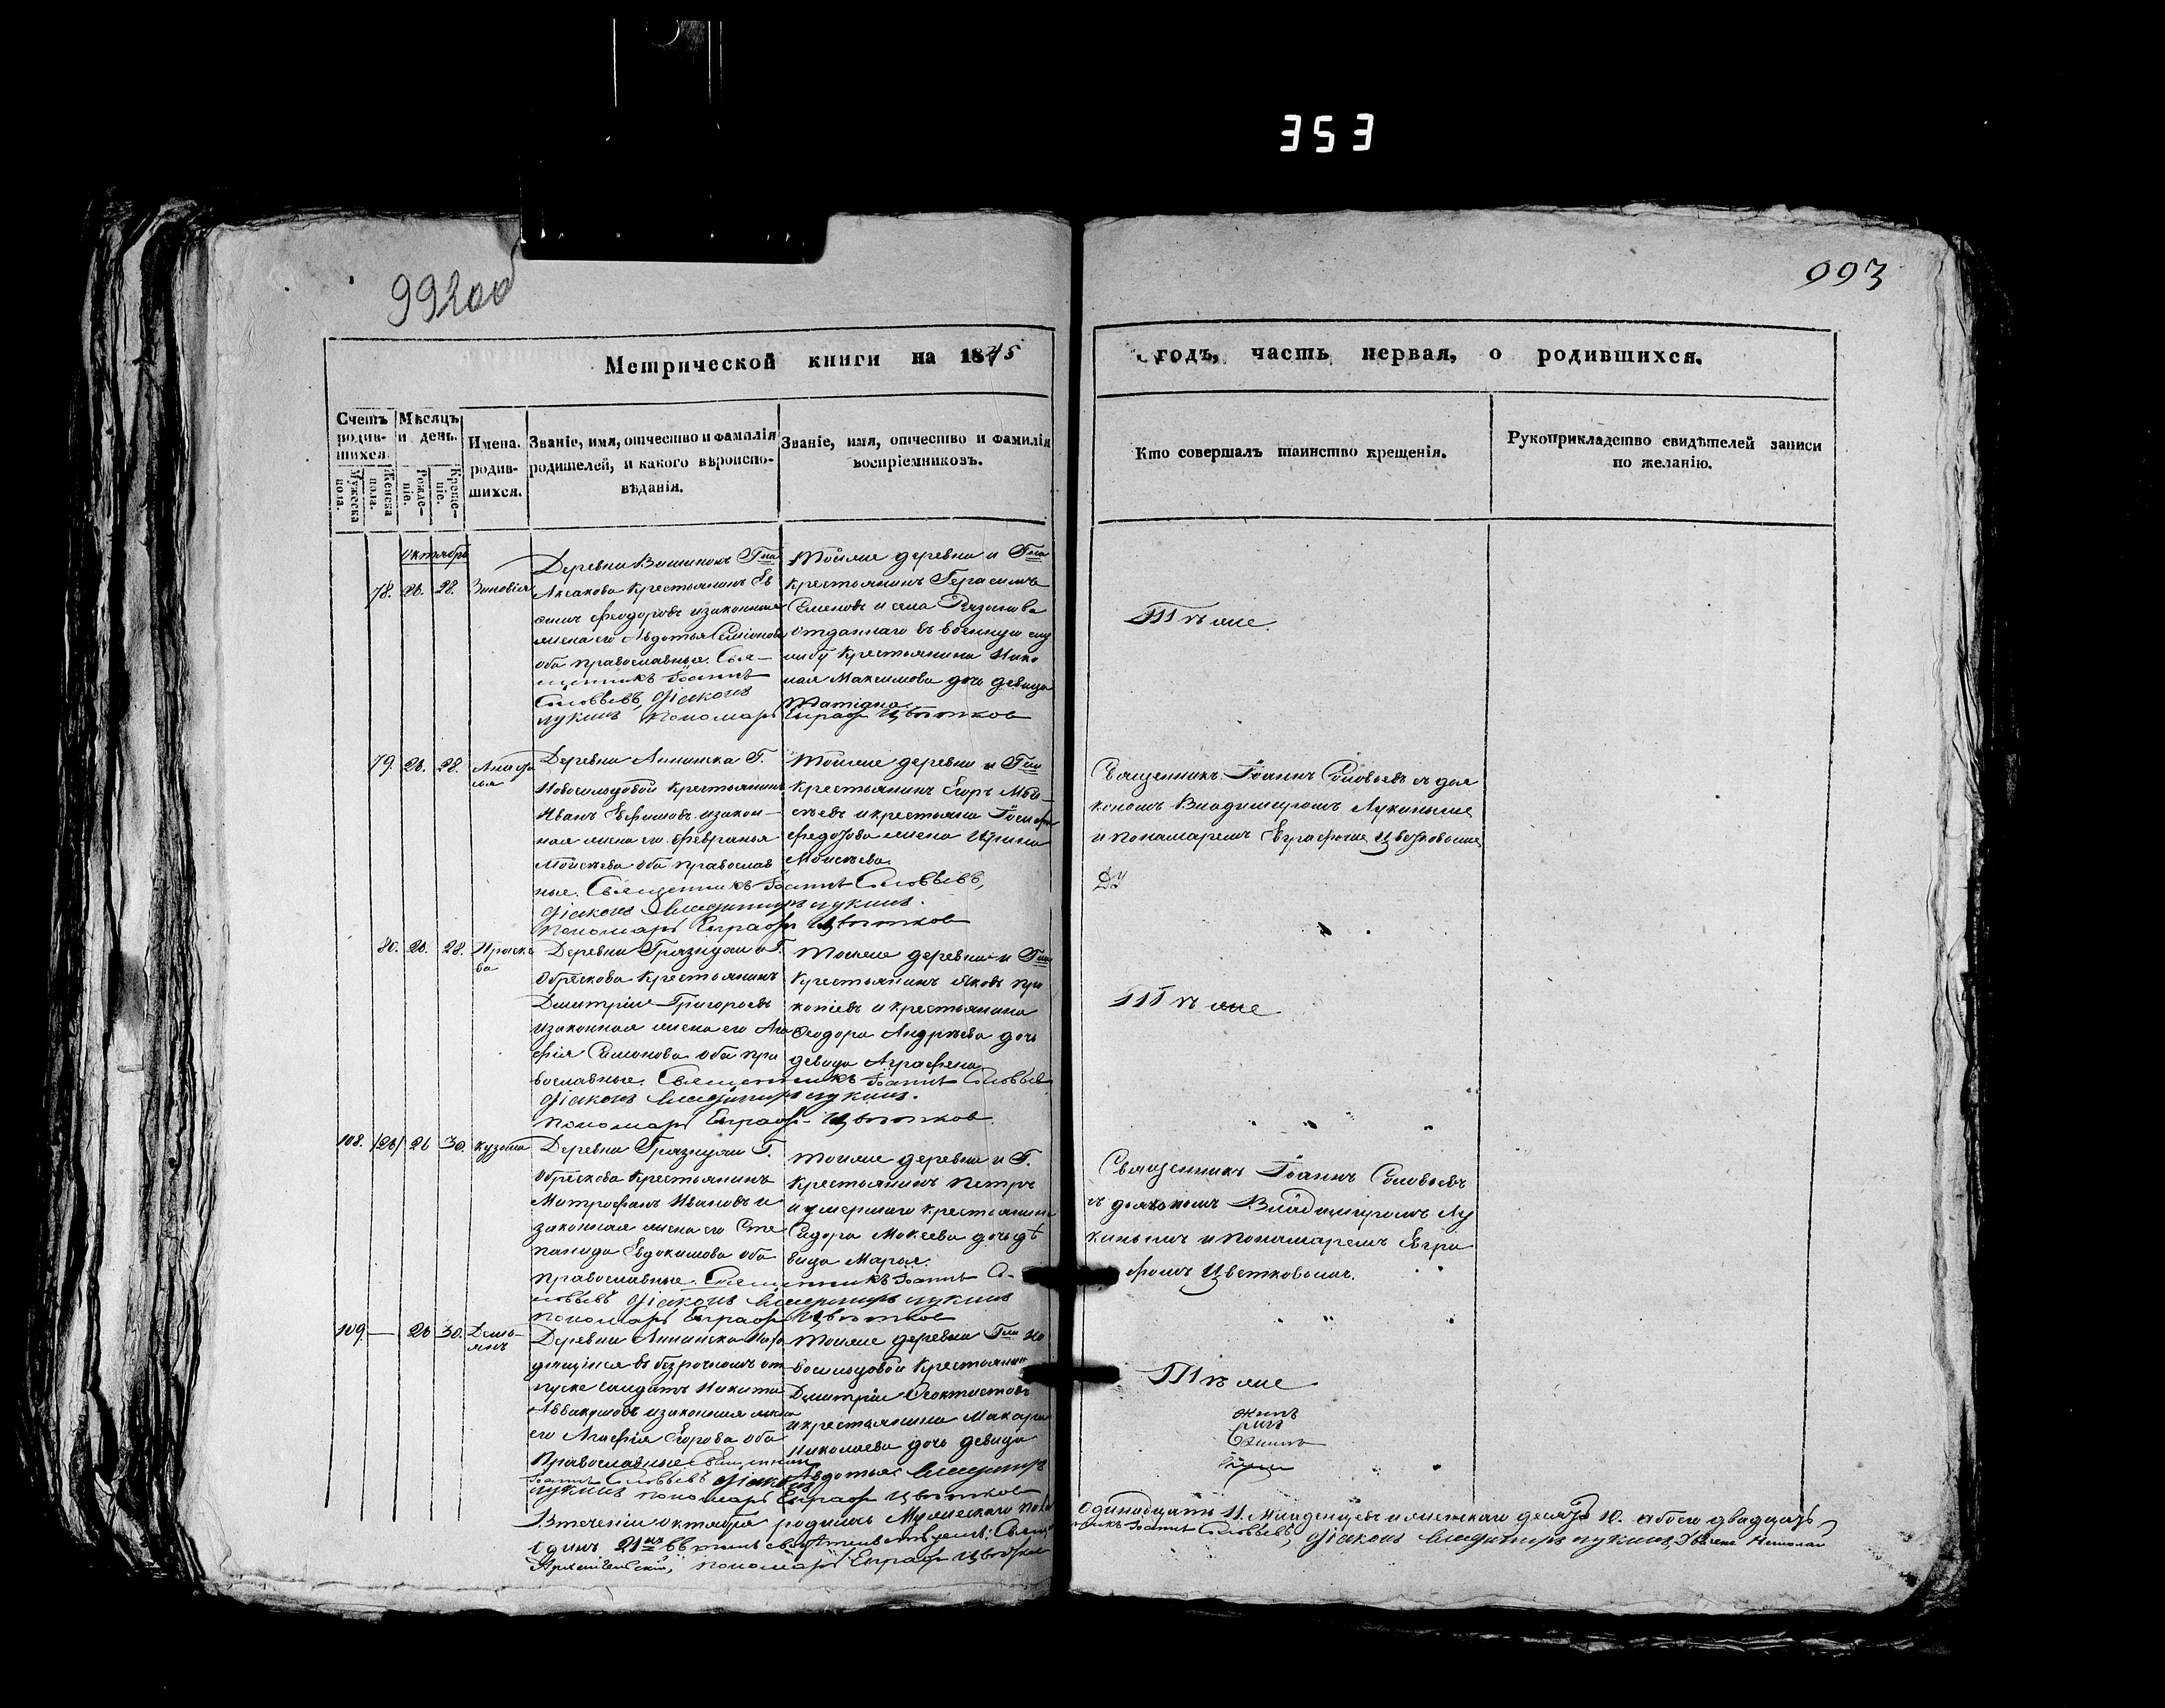 353
993
99200
Метрической книги на 1845
годъ, часть первая, о родившихся.
Счетъ родив-шихся.
Мѣсяцъ и день.
Мужеска пола.
Женска пола.
Рожде-ніе.
Креще-ніе.
Имена родив-шихся.
Званіе, имя, отчество и фамилія
родителей, и какого вѣроиспо-
вѣданія.
Званіе, имя, отчество и фамилія
воспріемниковъ.
Кто совершалъ таинство крещенія.
Рукоприкладство свидѣтелей записи
по желанію.
Октябрь
78. 26. 28. Зиновія
Деревни Г-на
Аксакова крестьянинъ Ев
Феодоровъ и законная
жена его Авдотья Семіонова
оба православные. Свя-
щенникъ Іоаннъ
Соловьевъ, Діаконъ
Лукинъ Пономарь Евграфъ Цвѣтковъ
Тойже деревни и Г-на
крестьянинъ Герасимъ
Семеновъ и села
отданнаго въ военную слу
жбу крестьянина
Максимова дочь девица
Татіана
Тѣ же
79. 26. 28.
Деревни Аннинска Г.
Новосильцовой крестьянинъ
Иванъ Ефимовъ и закон-
ная жена его Февранья
Моисеева оба православ
ные. Священникъ Іоаннъ Соловьевъ,
Діаконъ Владимиръ Лукинъ.
Пономарь Евграфъ Цвѣтковъ
Тойже деревни и Г-жи
крестьянинъ Егоръ
и крестьяни
Федотова жена Ирина
Моисеева.
Священникъ Іоаннъ Соловьевъ съ дія
кономъ Владимиромъ Лукинымъ
и пономаремъ Евграфомъ Цветковымъ
80. 26. 28. Праске
ва
Деревни Грязнухи Г.
Обрескова крестьянинъ
Дмитрій Григорьевъ
и законная жена его Ага
фія Симонова оба пра
вославные. Священникъ Іоаннъ Соловьевъ
Діаконъ Владимиръ Лукинъ.
Пономарь Евграфъ Цвѣтковъ.
Тойже деревни и Г-на
крестьянинъ Яковъ Про
копіевъ и крестьянина
Феодора Андреева дочь
девица Аграфена
Тѣ же
108. 26 30. Кузьма
Деревни Грязнухи Г.
Обрескова крестьянинъ
Митрофанъ Ивановъ и
законная жена его Сте
панида Евдокимова оба
православные. Священникъ Іоаннъ Со-
ловьевъ Діаконъ Владимиръ Лукинъ
Пономарь Евграфъ Цвѣтковъ
Тойже деревни и Г.
крестьянинъ Петръ
и умершаго крестьянина
Сидора Мокеева дочь дѣ
вица Марья.
Священникъ Іоаннъ Соловьевъ
съ діякономъ Владимиромъ Лу
кинымъ и пономаремъ Евгра
фомъ Цветковымъ.
109. — 26 30. Демь-
янъ
Деревни Аннинска нахо
дящійся въ безсрочномъ от
пуске солдатъ Никита
Аввакумовъ и законная жена
его Агафія Егорова оба
Православные Священникъ
Іоаннъ Соловьевъ Діаконъ Владимиръ
Лукинъ Пономарь Евграфъ Цвѣтковъ
Тойже деревни Г-жи Но
восильцовой крестьянинъ
Дмитрій Феоктистовъ
и крестьянина Макара
Николаева дочь девица
Авдотья
Тѣ же
Втеченіи октября родилось Мужескаго пола
Одинадцать 11. Младенцевъ и женскаго десять 10. а обоего двадцать
Одинъ 21-нъ Въ томъ свидѣтельствуемъ: Священ
никъ Іоаннъ Соловьевъ, Діаконъ Владимиръ Лукинъ,
Пономарь Евграфъ Цвѣтковъ